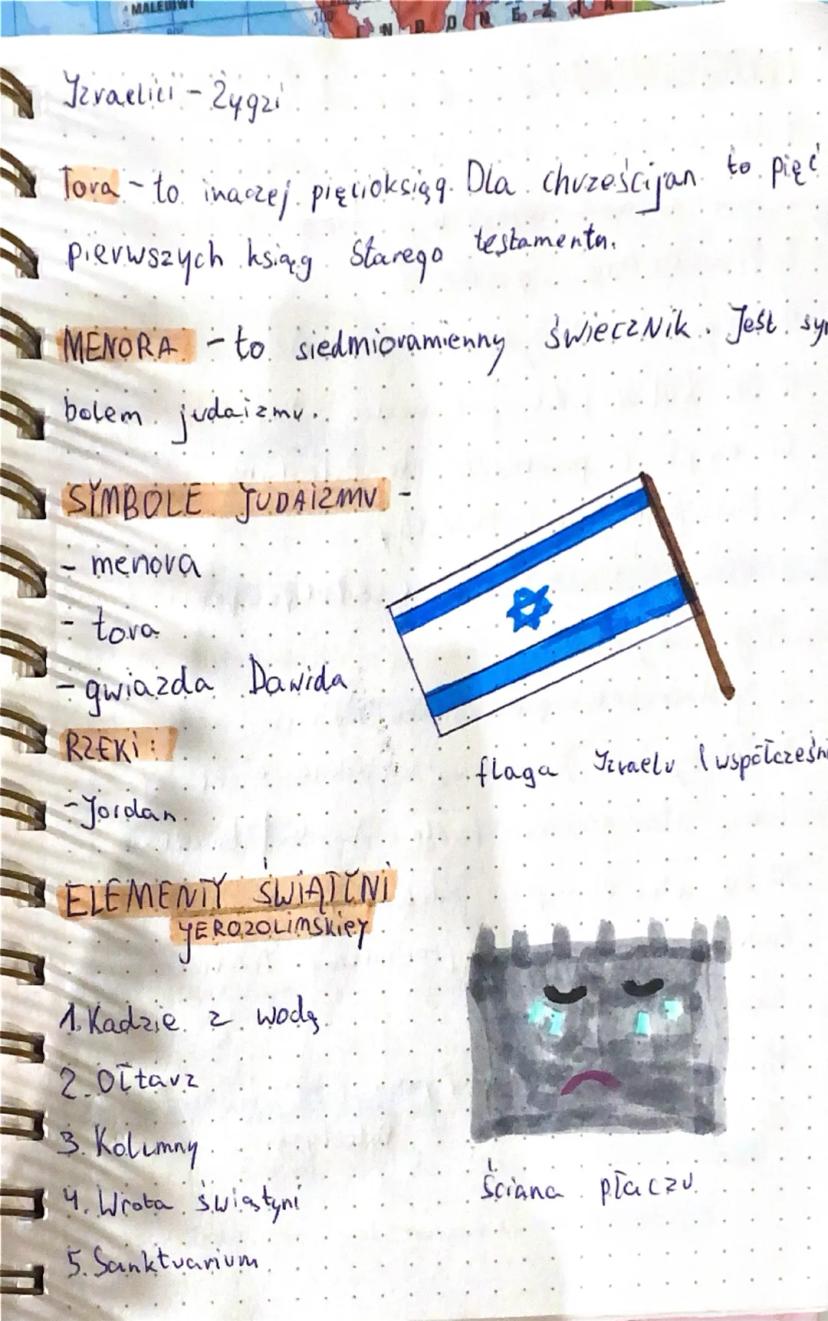 MALEDIWY
I N D O N E Z J A
Izraelici - Żydzi
Tora - to inaczej pięcioksiąg. Dla chrześcijan to pięć
pierwszych ksiąg Starego testamentu.
MENORA - to siedmioramienny świecznik. Jest sym
bolem judaizmu.
SYMBOLE JUDAIZMU -
- menora
- tora
- gwiazda Dawida
RZEKI:
- Jordan
flaga Izraelu (współcześni
ELEMENTY ŚWIĄTYNI
JEROZOLIMSKIEJ
1. Kadzie z wodą
2. Ołtarz
3. Kolumny
4. Wrota świątyni
5. Sanktuarium
Ściana płaczu